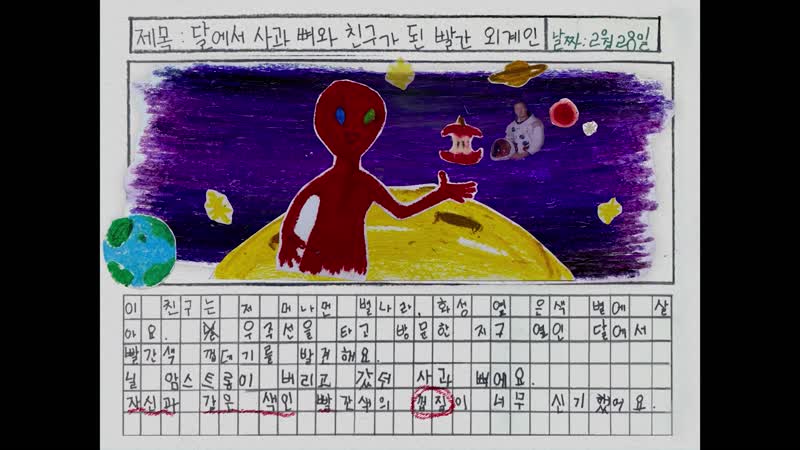 제목 : 달에서 사과 뼈와 친구가 된 빨간 외계인
날짜 : 2월 28일
이 친구는 저 머나먼 별나라, 화성 옆 은색 별에 살
아요. 우주선을 타고 방문한 지구 옆인 달에서
빨간색 껍데기를 발견해요.
닐 암스트롱이 버리고 갔던 사과 뼈에요.
자신과 같은 색인 빨간색의 껍질이 너무 신기했어요.